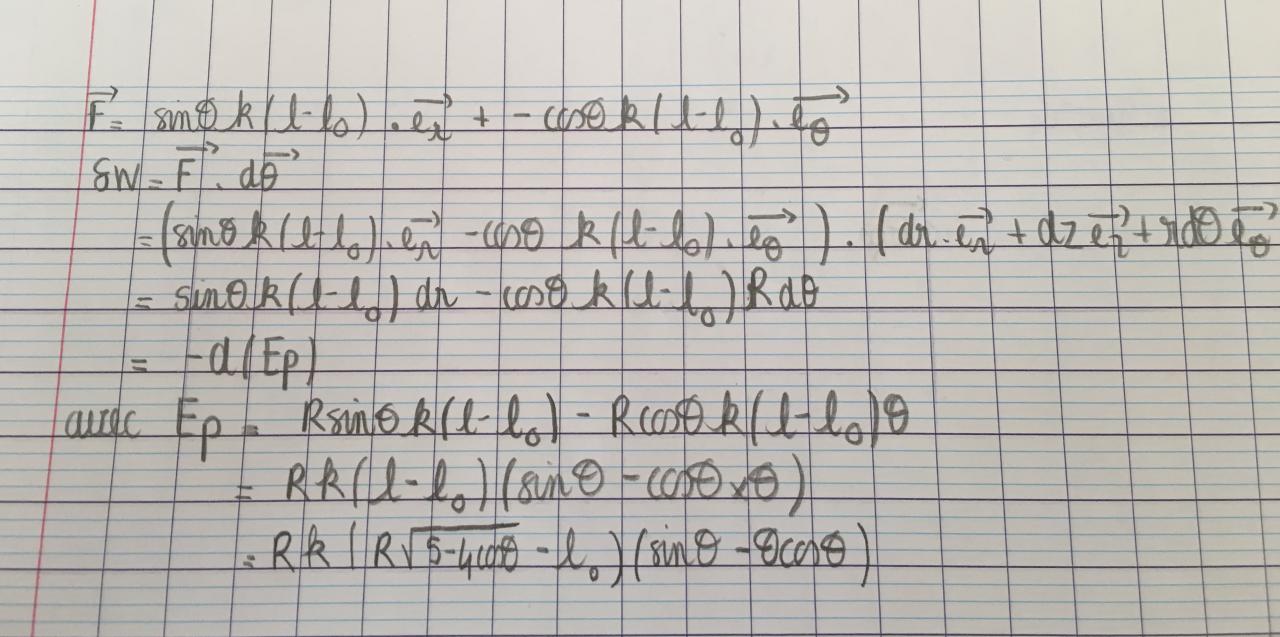 F⃗ = sinθ k(l-l₀).e⃗r + - cosθ k(l-l₀).e⃗θ
δW = F⃗ . dθ⃗
= (sinθ k(l-l₀).e⃗r - cosθ k(l-l₀).e⃗θ) . (dr.e⃗r + dz e⃗z + rdθ e⃗θ
= sinθ k(l-l₀) dr - cosθ k(l-l₀) R dθ
= -d(Ep)
avec Ep = R sinθ k(l-l₀) - R cosθ k(l-l₀)θ
= R k(l-l₀)(sinθ - cosθ × θ)
= R k(R√(5-4cosθ) - l₀)(sinθ - θcosθ)